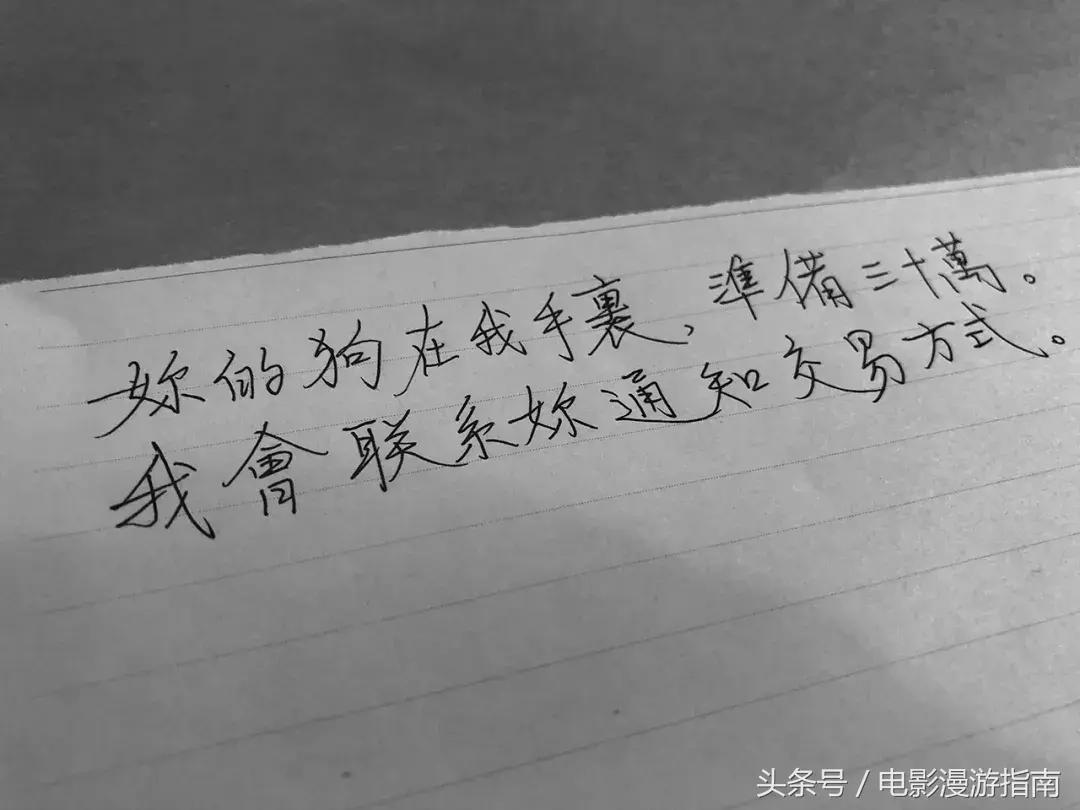 妳的狗在我手裏，準備三十萬。
我會联系妳通知交易方式。
头条号 / 电影漫游指南